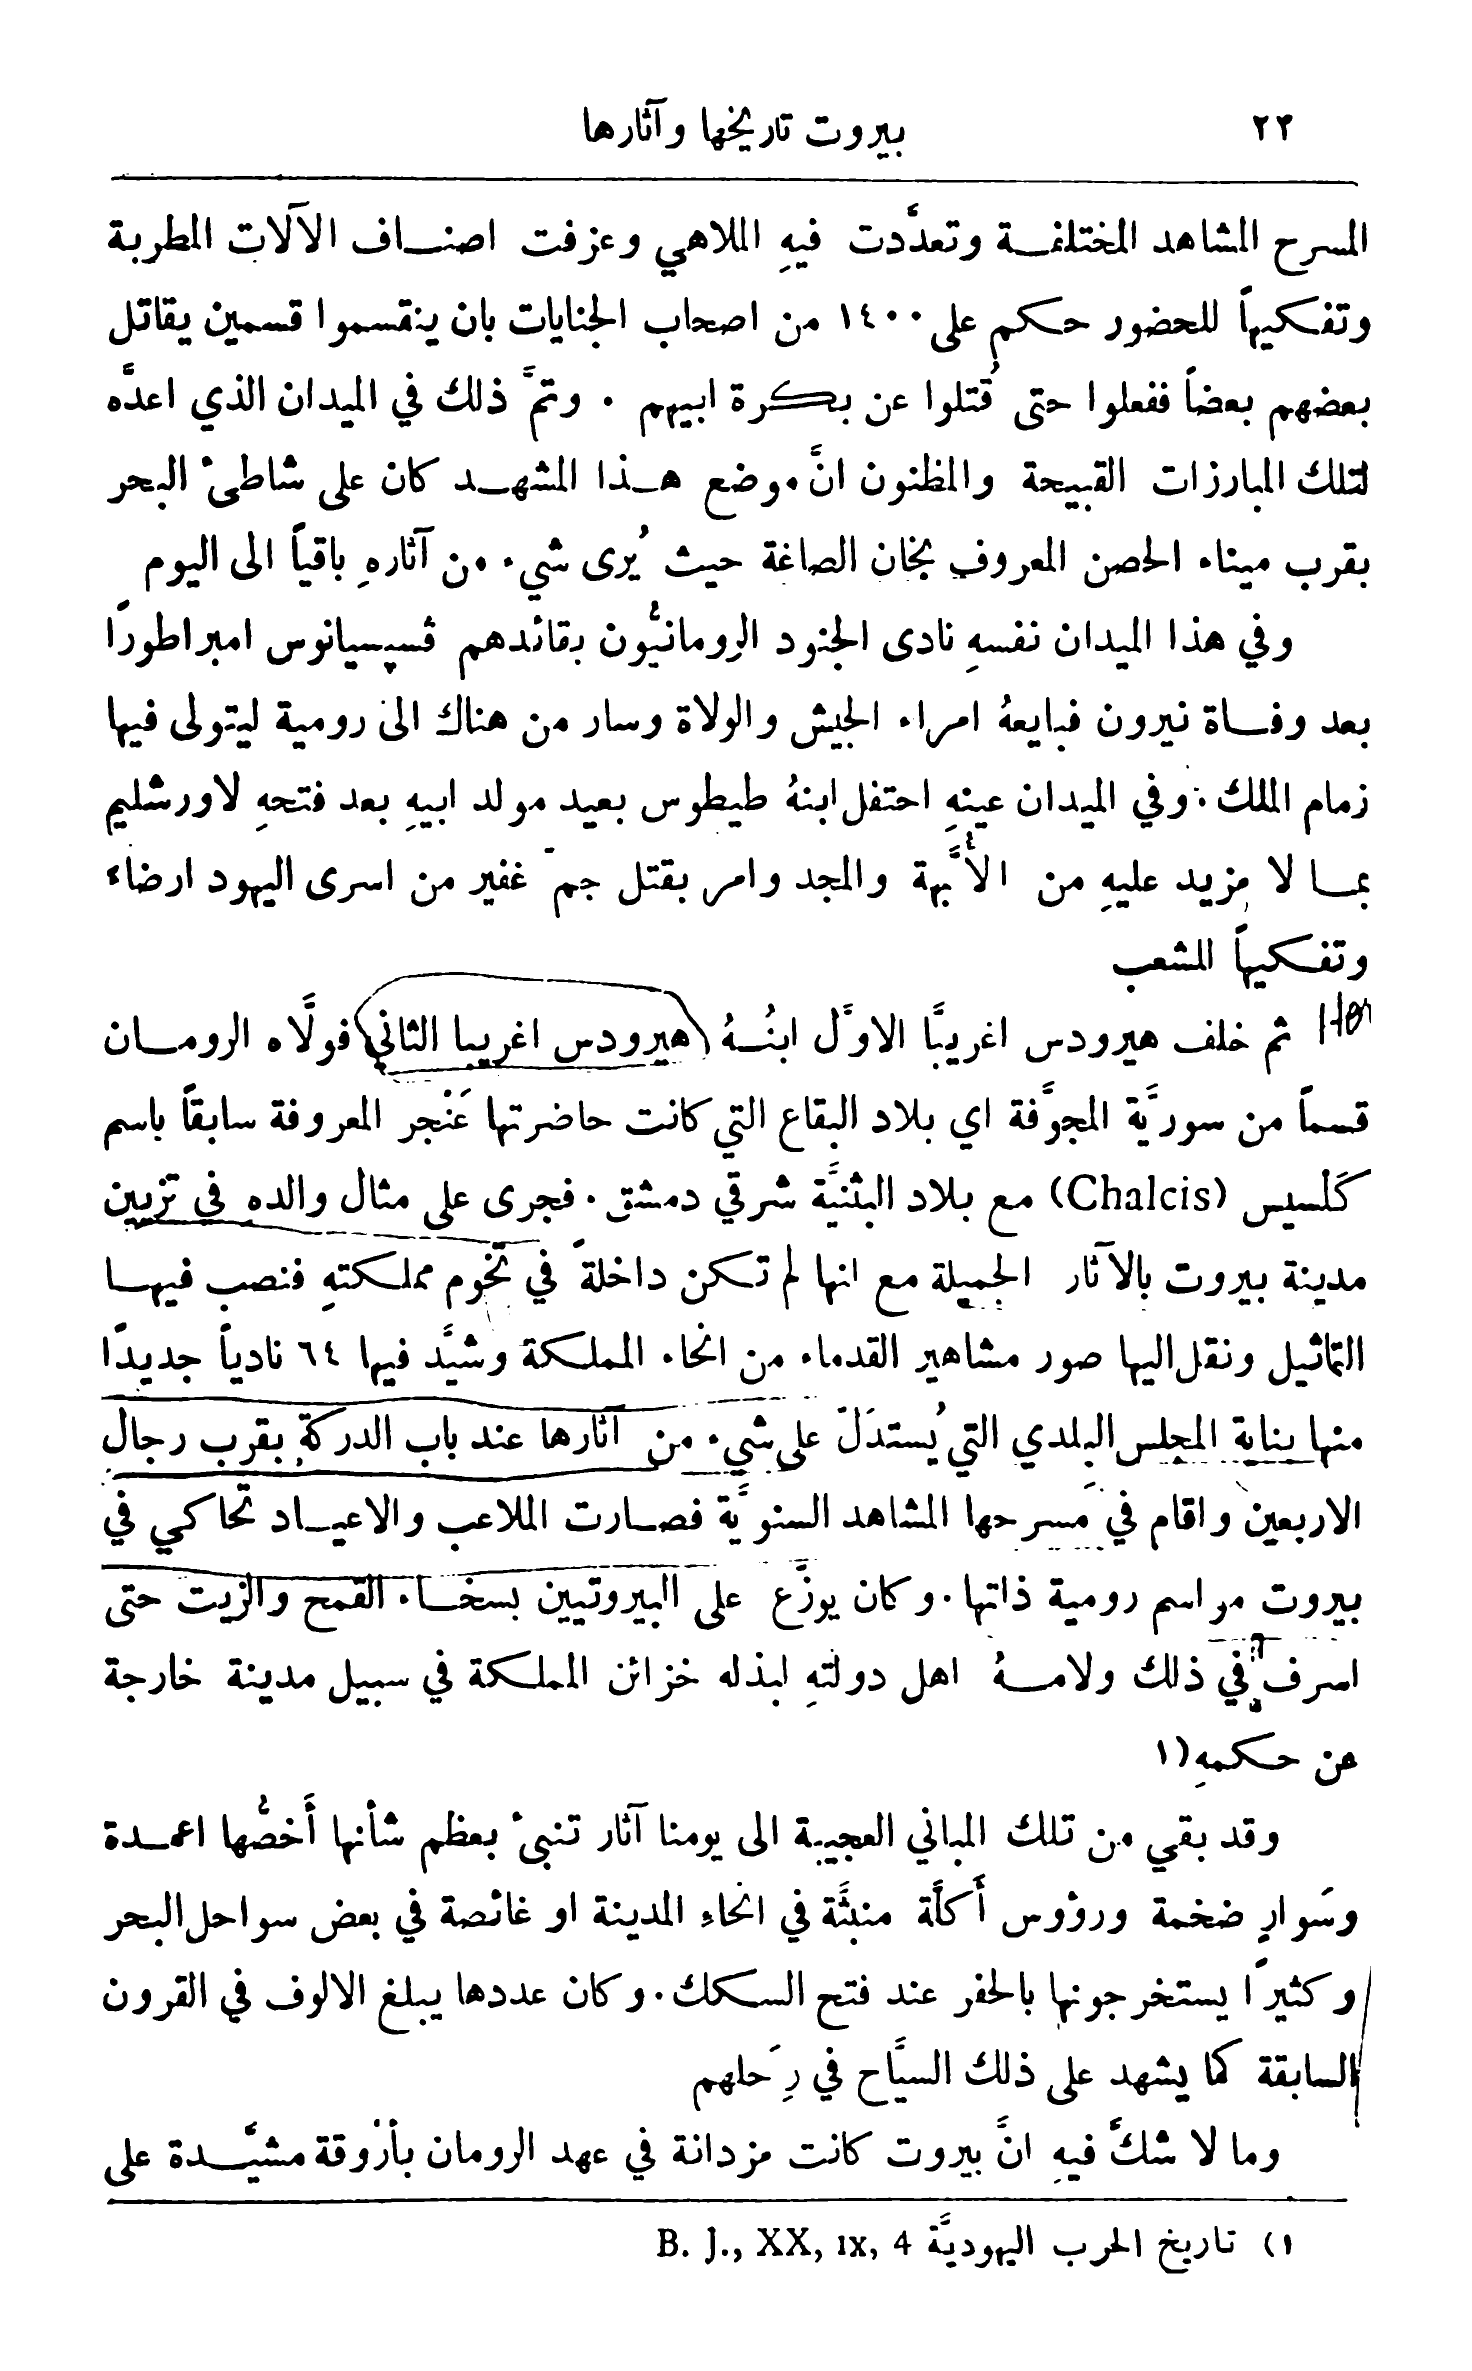 ٢٢ بيروت تاريخها وآثارها
المسرح المشاهد المختلفة وتعدَّدت فيهِ الملاهي وعزفت اصناف الآلات المطربة
وتفكيهاً للحضور حكم على ١٤٠٠ من اصحاب الجنايات بان ينقسموا قسمين يقاتل
بعضهم بعضاً ففعلوا حتى قُتلوا عن بكرة ابيهم . وتمَّ ذلك في الميدان الذي اعدَّه
لتلك المبارزات القبيحة والمظنون انَّ موضع هذا المشهد كان على شاطئ البحر
بقرب ميناء الحصن المعروف بخان الصاغة حيث يُرى شيء من آثارهِ باقياً الى اليوم
وفي هذا الميدان نفسهِ نادى الجنود الرومانيُّون بقائدهم ڤسپسيانوس امبراطورًا
بعد وفاة نيرون فبايعهُ امراء الجيش والولاة وسار من هناك الى رومية ليتولى فيها
زمام الملك . وفي الميدان عينهِ احتفل ابنهُ طيطوس بعيد مولد ابيهِ بعد فتحهِ لاورشليم
بما لا مزيد عليهِ من الأُبَّهة والمجد وامر بقتل جمّ غفير من اسرى اليهود ارضاءً
وتفكيهاً للشعب
Her ثم خلف هيرودس اغريبَّا الاوَّل ابنُهُ هيرودس اغريبا الثاني فولَّاه الرومان
قسماً من سوريَّة المجوَّفة اي بلاد البقاع التي كانت حاضرتها عَنْجر المعروفة سابقاً باسم
كَلْسيس (Chalcis) مع بلاد البثنيَّة شرقي دمشق . فجرى على مثال والده في تزيين
مدينة بيروت بالآثار الجميلة مع انها لم تكن داخلةً في تخوم مملكتهِ فنصب فيها
التماثيل ونقل اليها صور مشاهير القدماء من انحاء المملكة وشيَّد فيها ٦٤ نادياً جديدًا
منها بناية المجلس البلدي التي يُستدَلّ على شيء من آثارها عند باب الدركة بقرب رجال
الاربعين واقام في مَسرحها المشاهد السنويَّة فصارت الملاعب والاعياد تحاكي في
بيروت مراسم رومية ذاتها . وكان يوزّع على البيروتيين بسخاء القمح والزيت حتى
اسرف في ذلك ولامهُ اهل دولتهِ لبذله خزائن المملكة في سبيل مدينة خارجة
عن حكمهِ (١
وقد بقي من تلك المباني العجيبة الى يومنا آثار تنبئ بعظم شأنها أَخصُّها اعمدة
وسَوارٍ ضخمة ورؤوس أَكلَّة منبثَّة في انحاءِ المدينة او غائصة في بعض سواحل البحر
وكثيرًا يستخرجونها بالحفر عند فتح السكك . وكان عددها يبلغ الالوف في القرون
السابقة كما يشهد على ذلك السيَّاح في رِحَلهم
وما لا شكَّ فيهِ انَّ بيروت كانت مزدانة في عهد الرومان بأَرْوقة مشيَّدة على
١) تاريخ الحرب اليهوديَّة B. J., XX, IX, 4